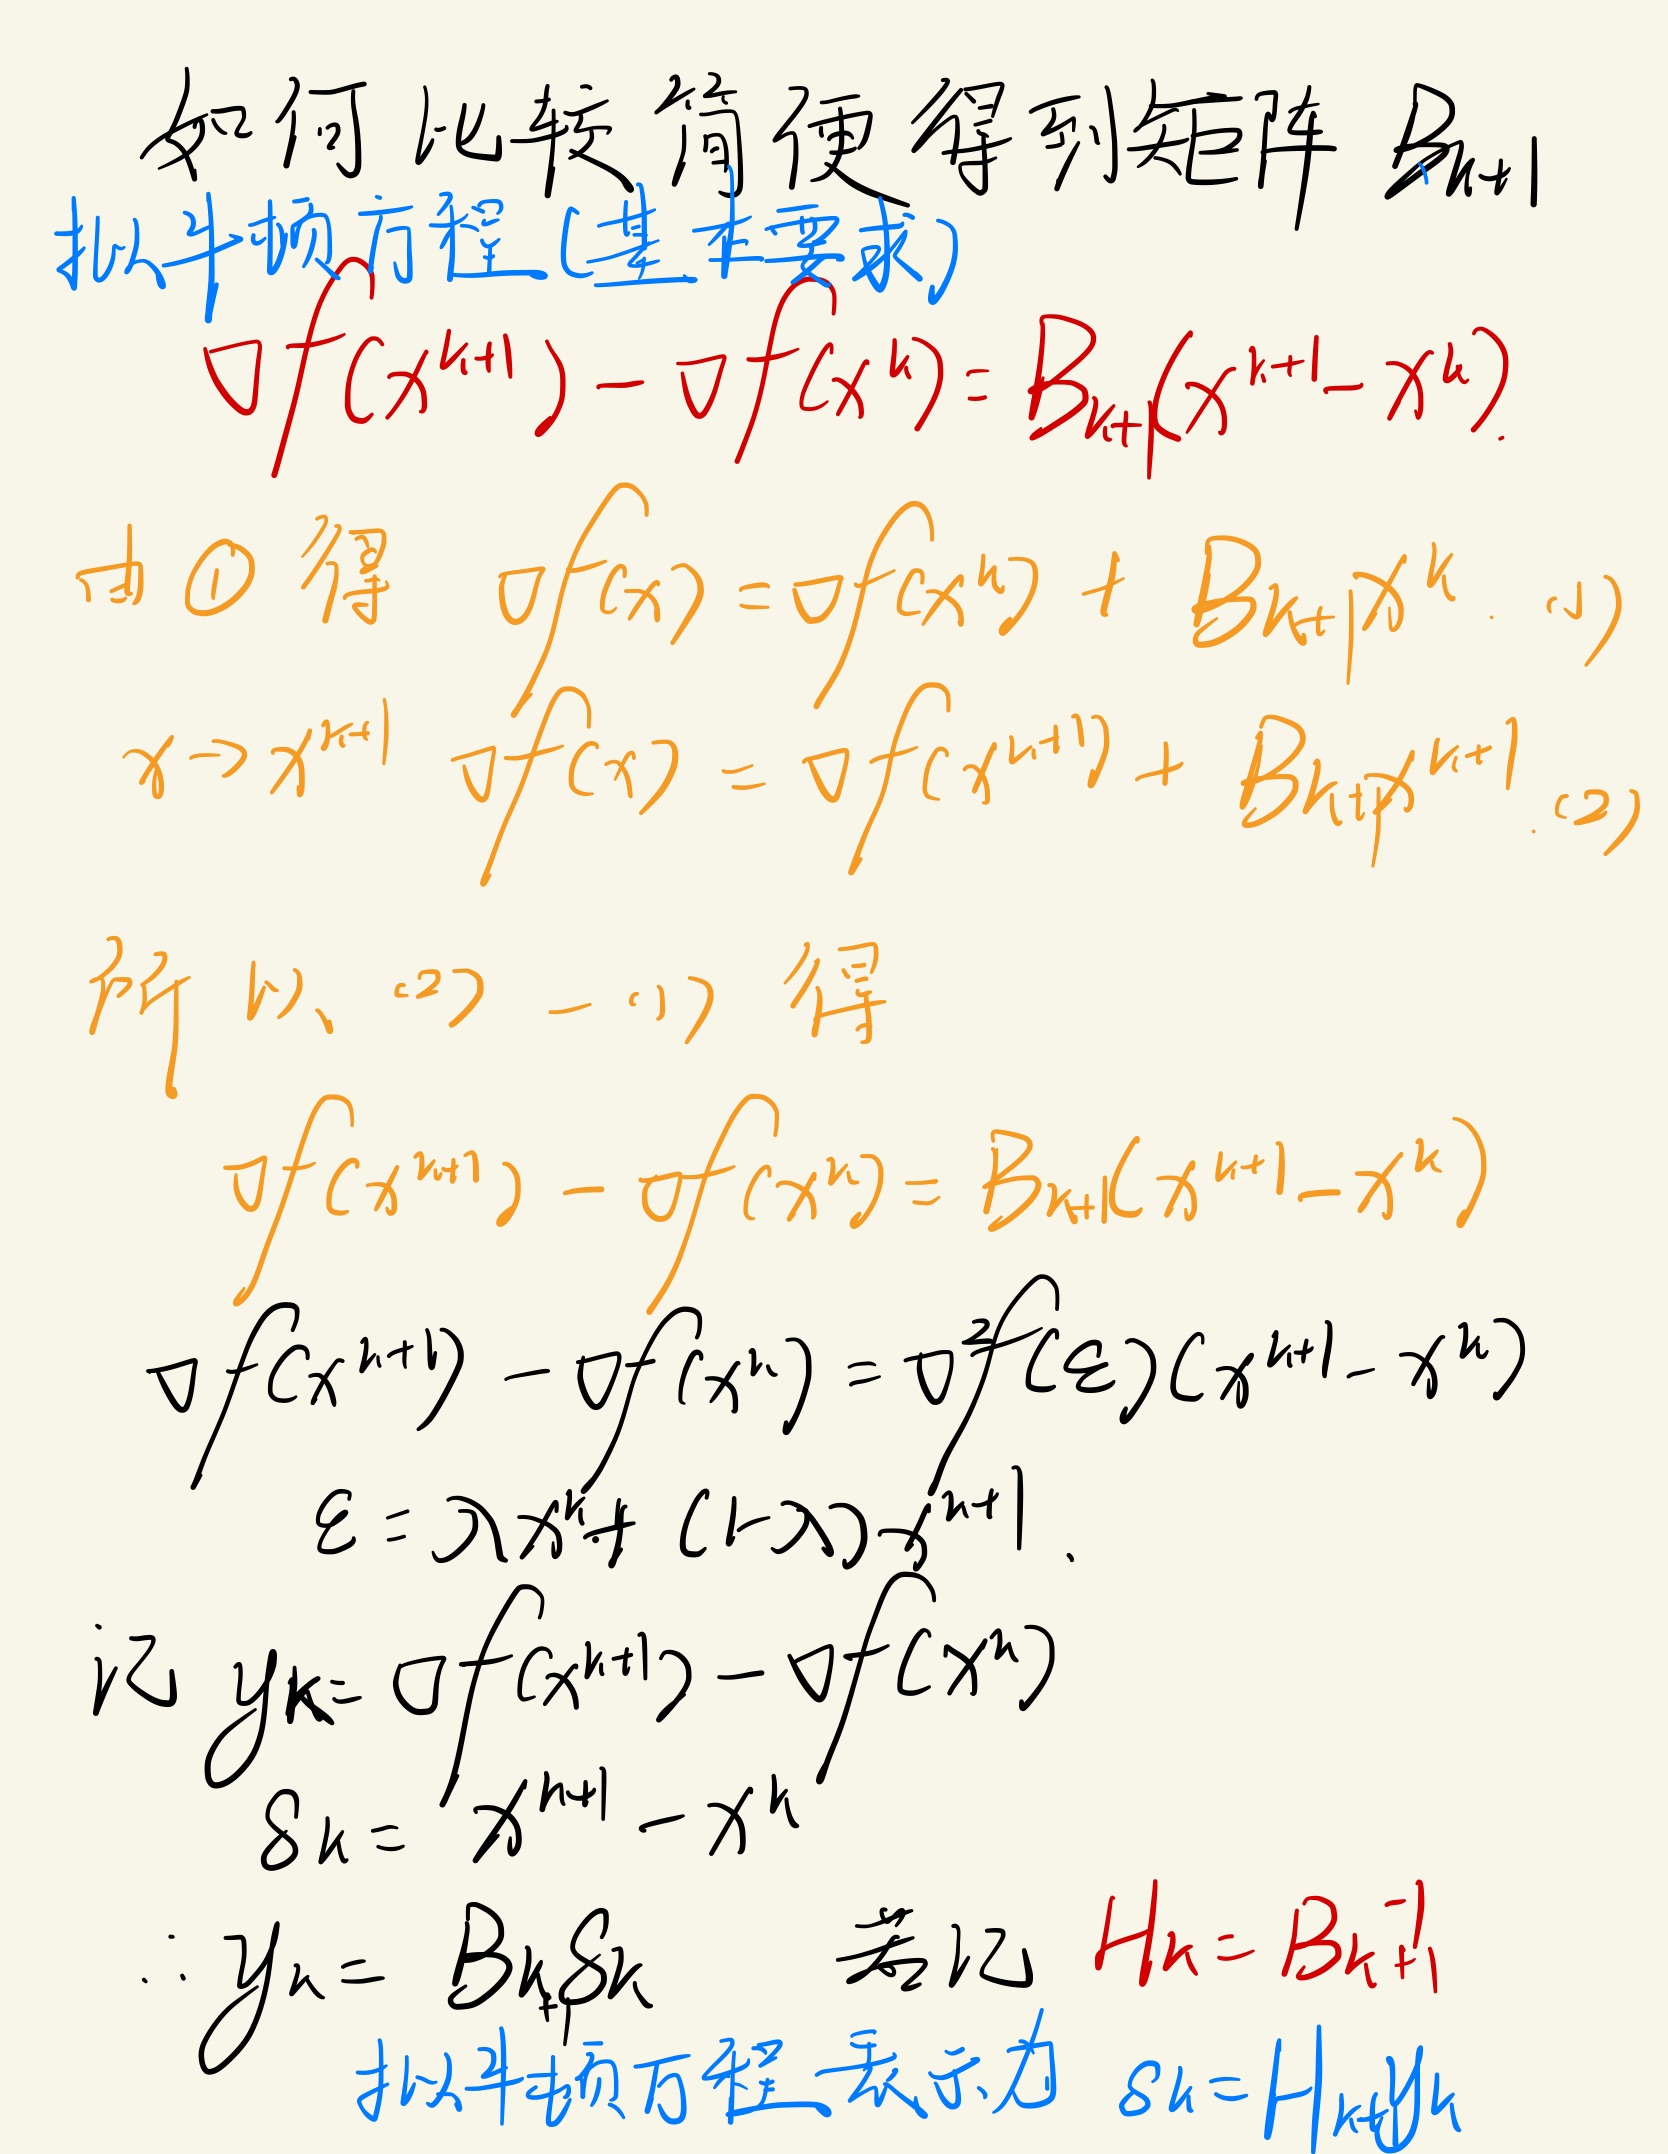 如何比较简便得到矩阵 Bₖ₊₁
拟牛顿方程(基本要求)
∇f(xᵏ⁺¹) - ∇f(xᵏ) = Bₖ₊₁(xᵏ⁺¹ - xᵏ).
由①得 ∇f(x) = ∇f(xᵏ) + Bₖ₊₁xᵏ. (1)
x → xᵏ⁺¹ ∇f(x) = ∇f(xᵏ⁺¹) + Bₖ₊₁xᵏ⁺¹. (2)
所以、(2) - (1) 得
∇f(xᵏ⁺¹) - ∇f(xᵏ) = Bₖ₊₁(xᵏ⁺¹ - xᵏ)
∇f(xᵏ⁺¹) - ∇f(xᵏ) = ∇²f(ε)(xᵏ⁺¹ - xᵏ)
ε = λxᵏ + (1-λ)xᵏ⁺¹.
记 yₖ = ∇f(xᵏ⁺¹) - ∇f(xᵏ)
δₖ = xᵏ⁺¹ - xᵏ
∴ yₖ = Bₖ₊₁δₖ 若记 Hₖ = Bₖ₊₁⁻¹
拟牛顿方程表示为 δₖ = Hₖ₊₁yₖ